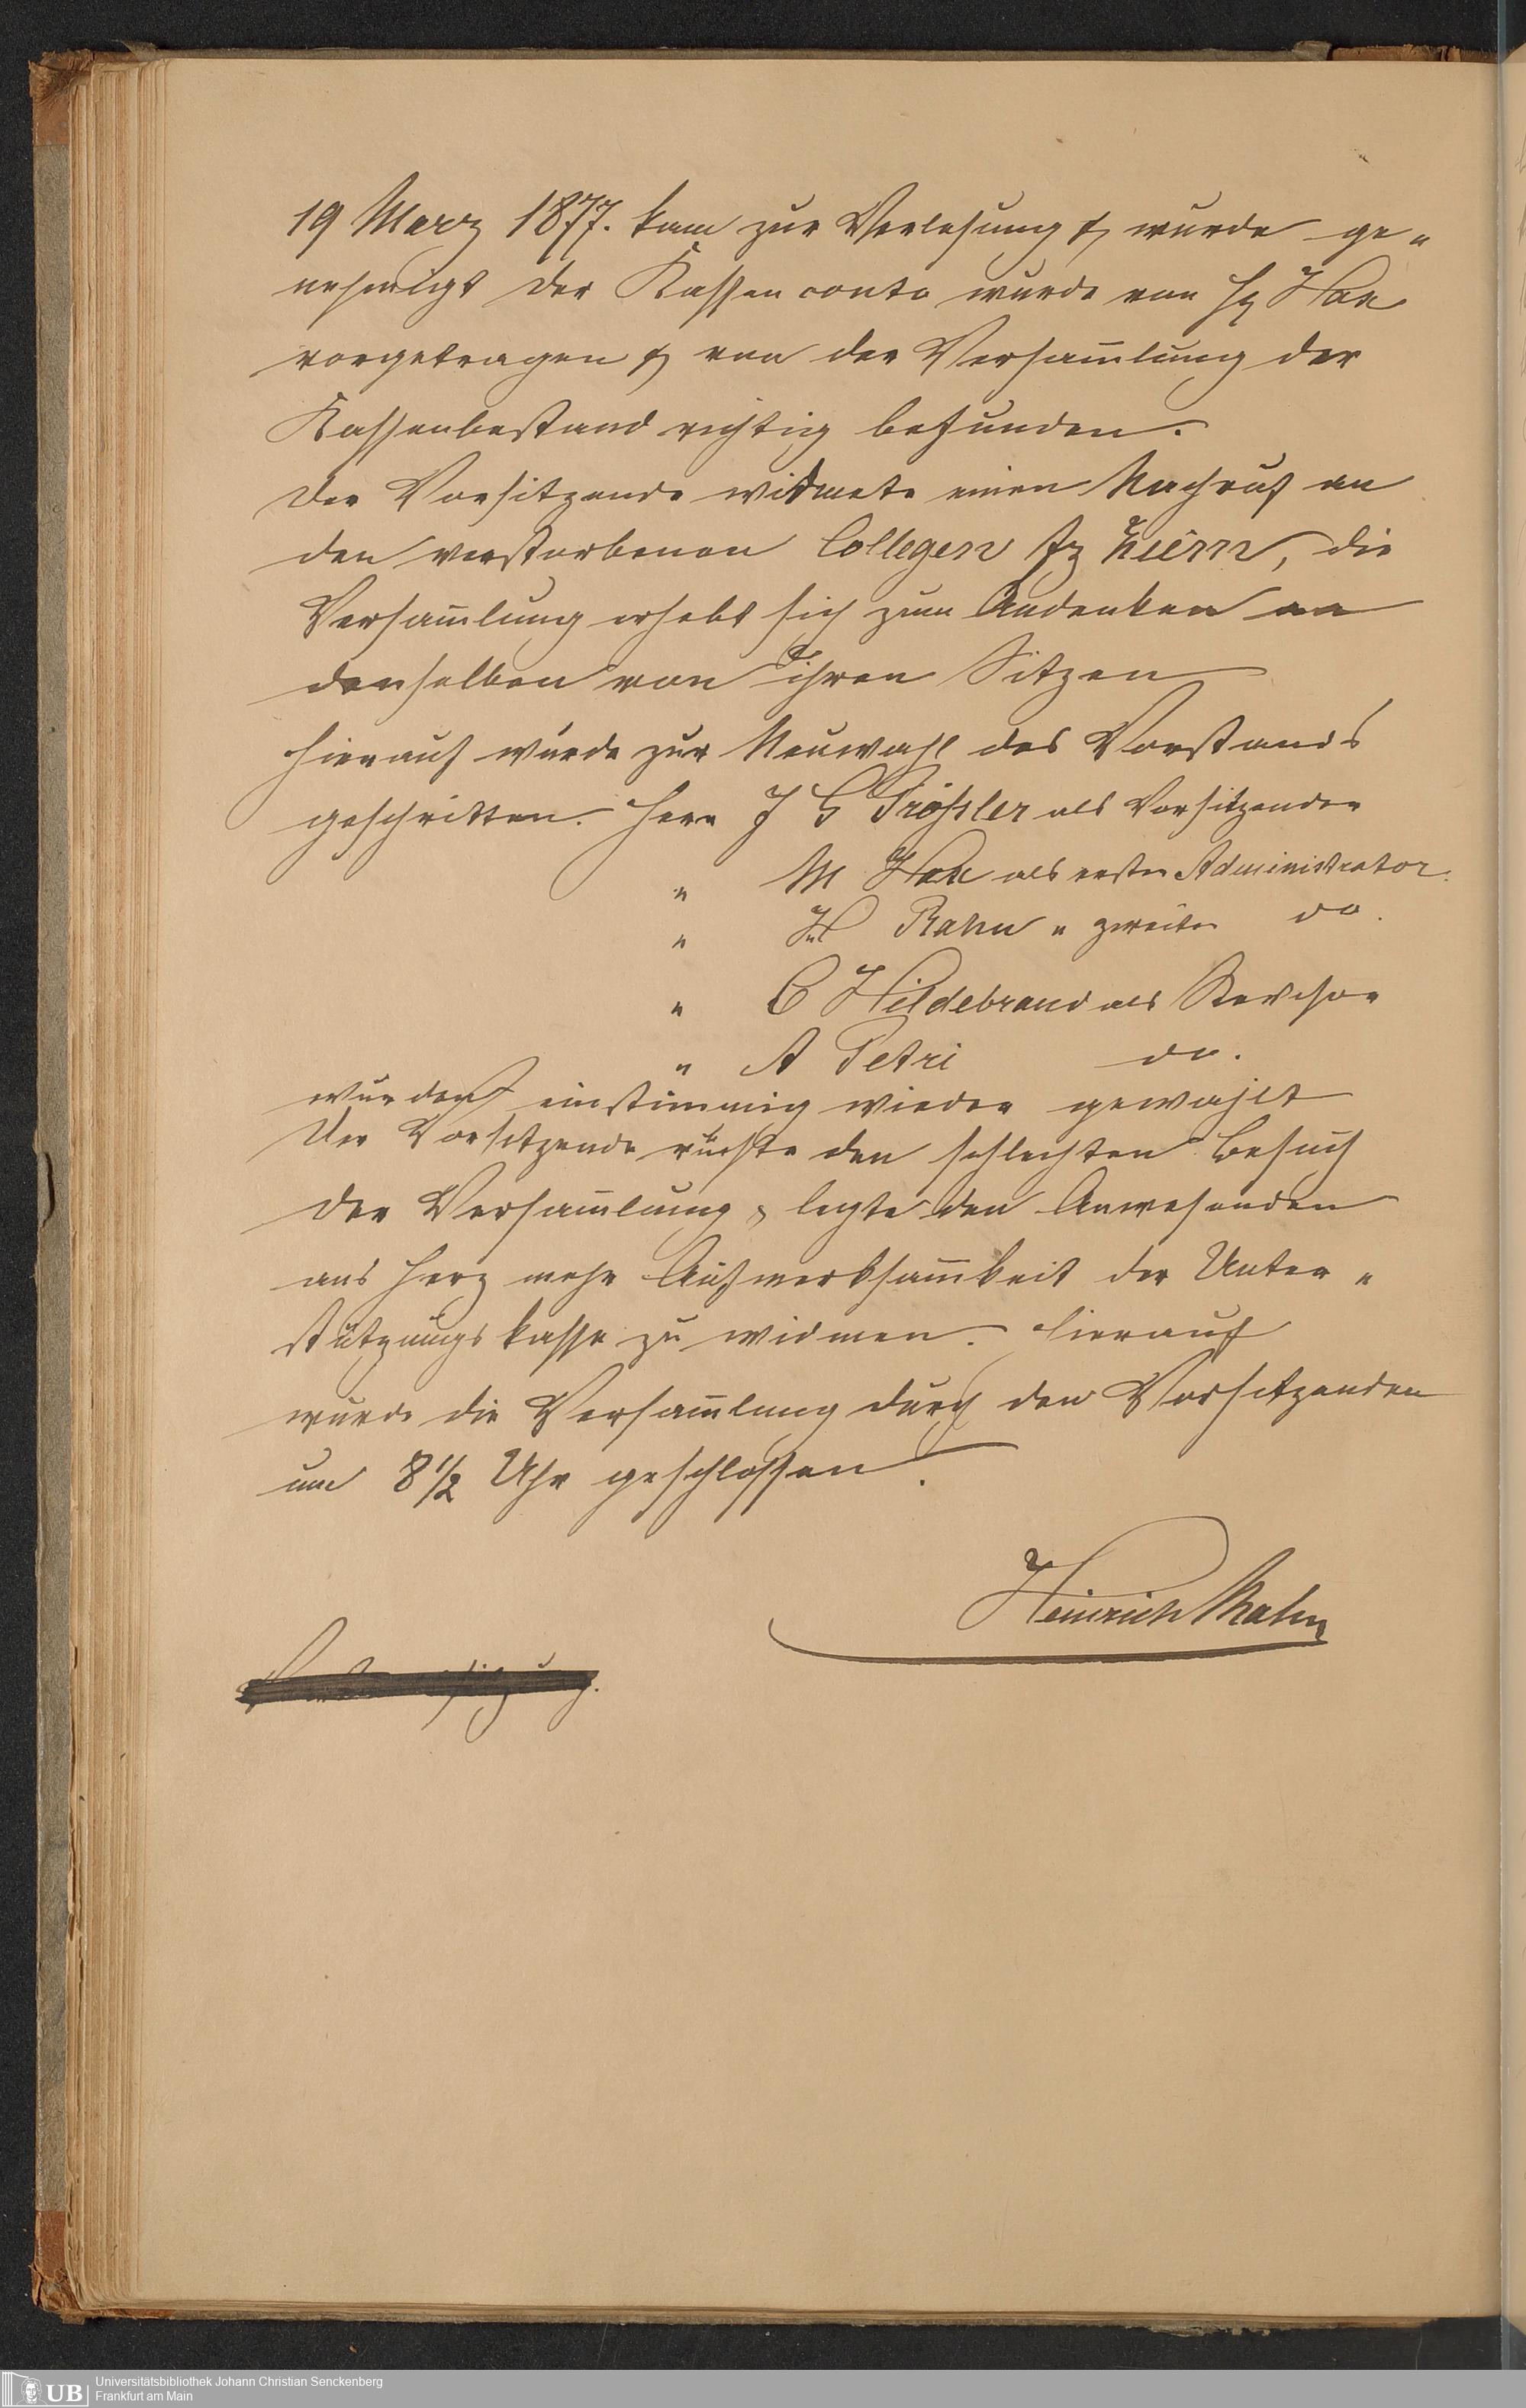 19 Marz 1877. kam zur Verlesung & wurde ge-
nehmigt der Kassenconto wurde von H Hak
vorgetragen & von der Versam̄lung der
Kassenbestand richtig befunden.
Der Vorsitzende widmete einen Nachruf an
den verstorbenen Collegen die
Versam̄lung erhebt sich zum Andenken an
denselben von ihren Sitzen
hierauf wurde zur Neuwahl des Vorstands
geschritten. Herr J G Prößler als Vorsitzender
" M Hak als erster Administrator.
" H Rahn " zweiter do.
" C Hildebrand als Revisor
" A Petri do.
wurden einstimmig wieder gewahlt
Der Vorsitzende rügte den schlechten Besuch
der Versam̄lung & legte den Anwesenden
ans Herz mehr Aufmerksam̄keit der Unter-
stützungskasse zu widmen. hierauf
wurde die Versam̄lung durch den Vorsitzenden
um 8 1/2 Uhr geschlossen.
Heinrich Rahn
UB Universitätsbibliothek Johann Christian Senckenberg
Frankfurt am Main